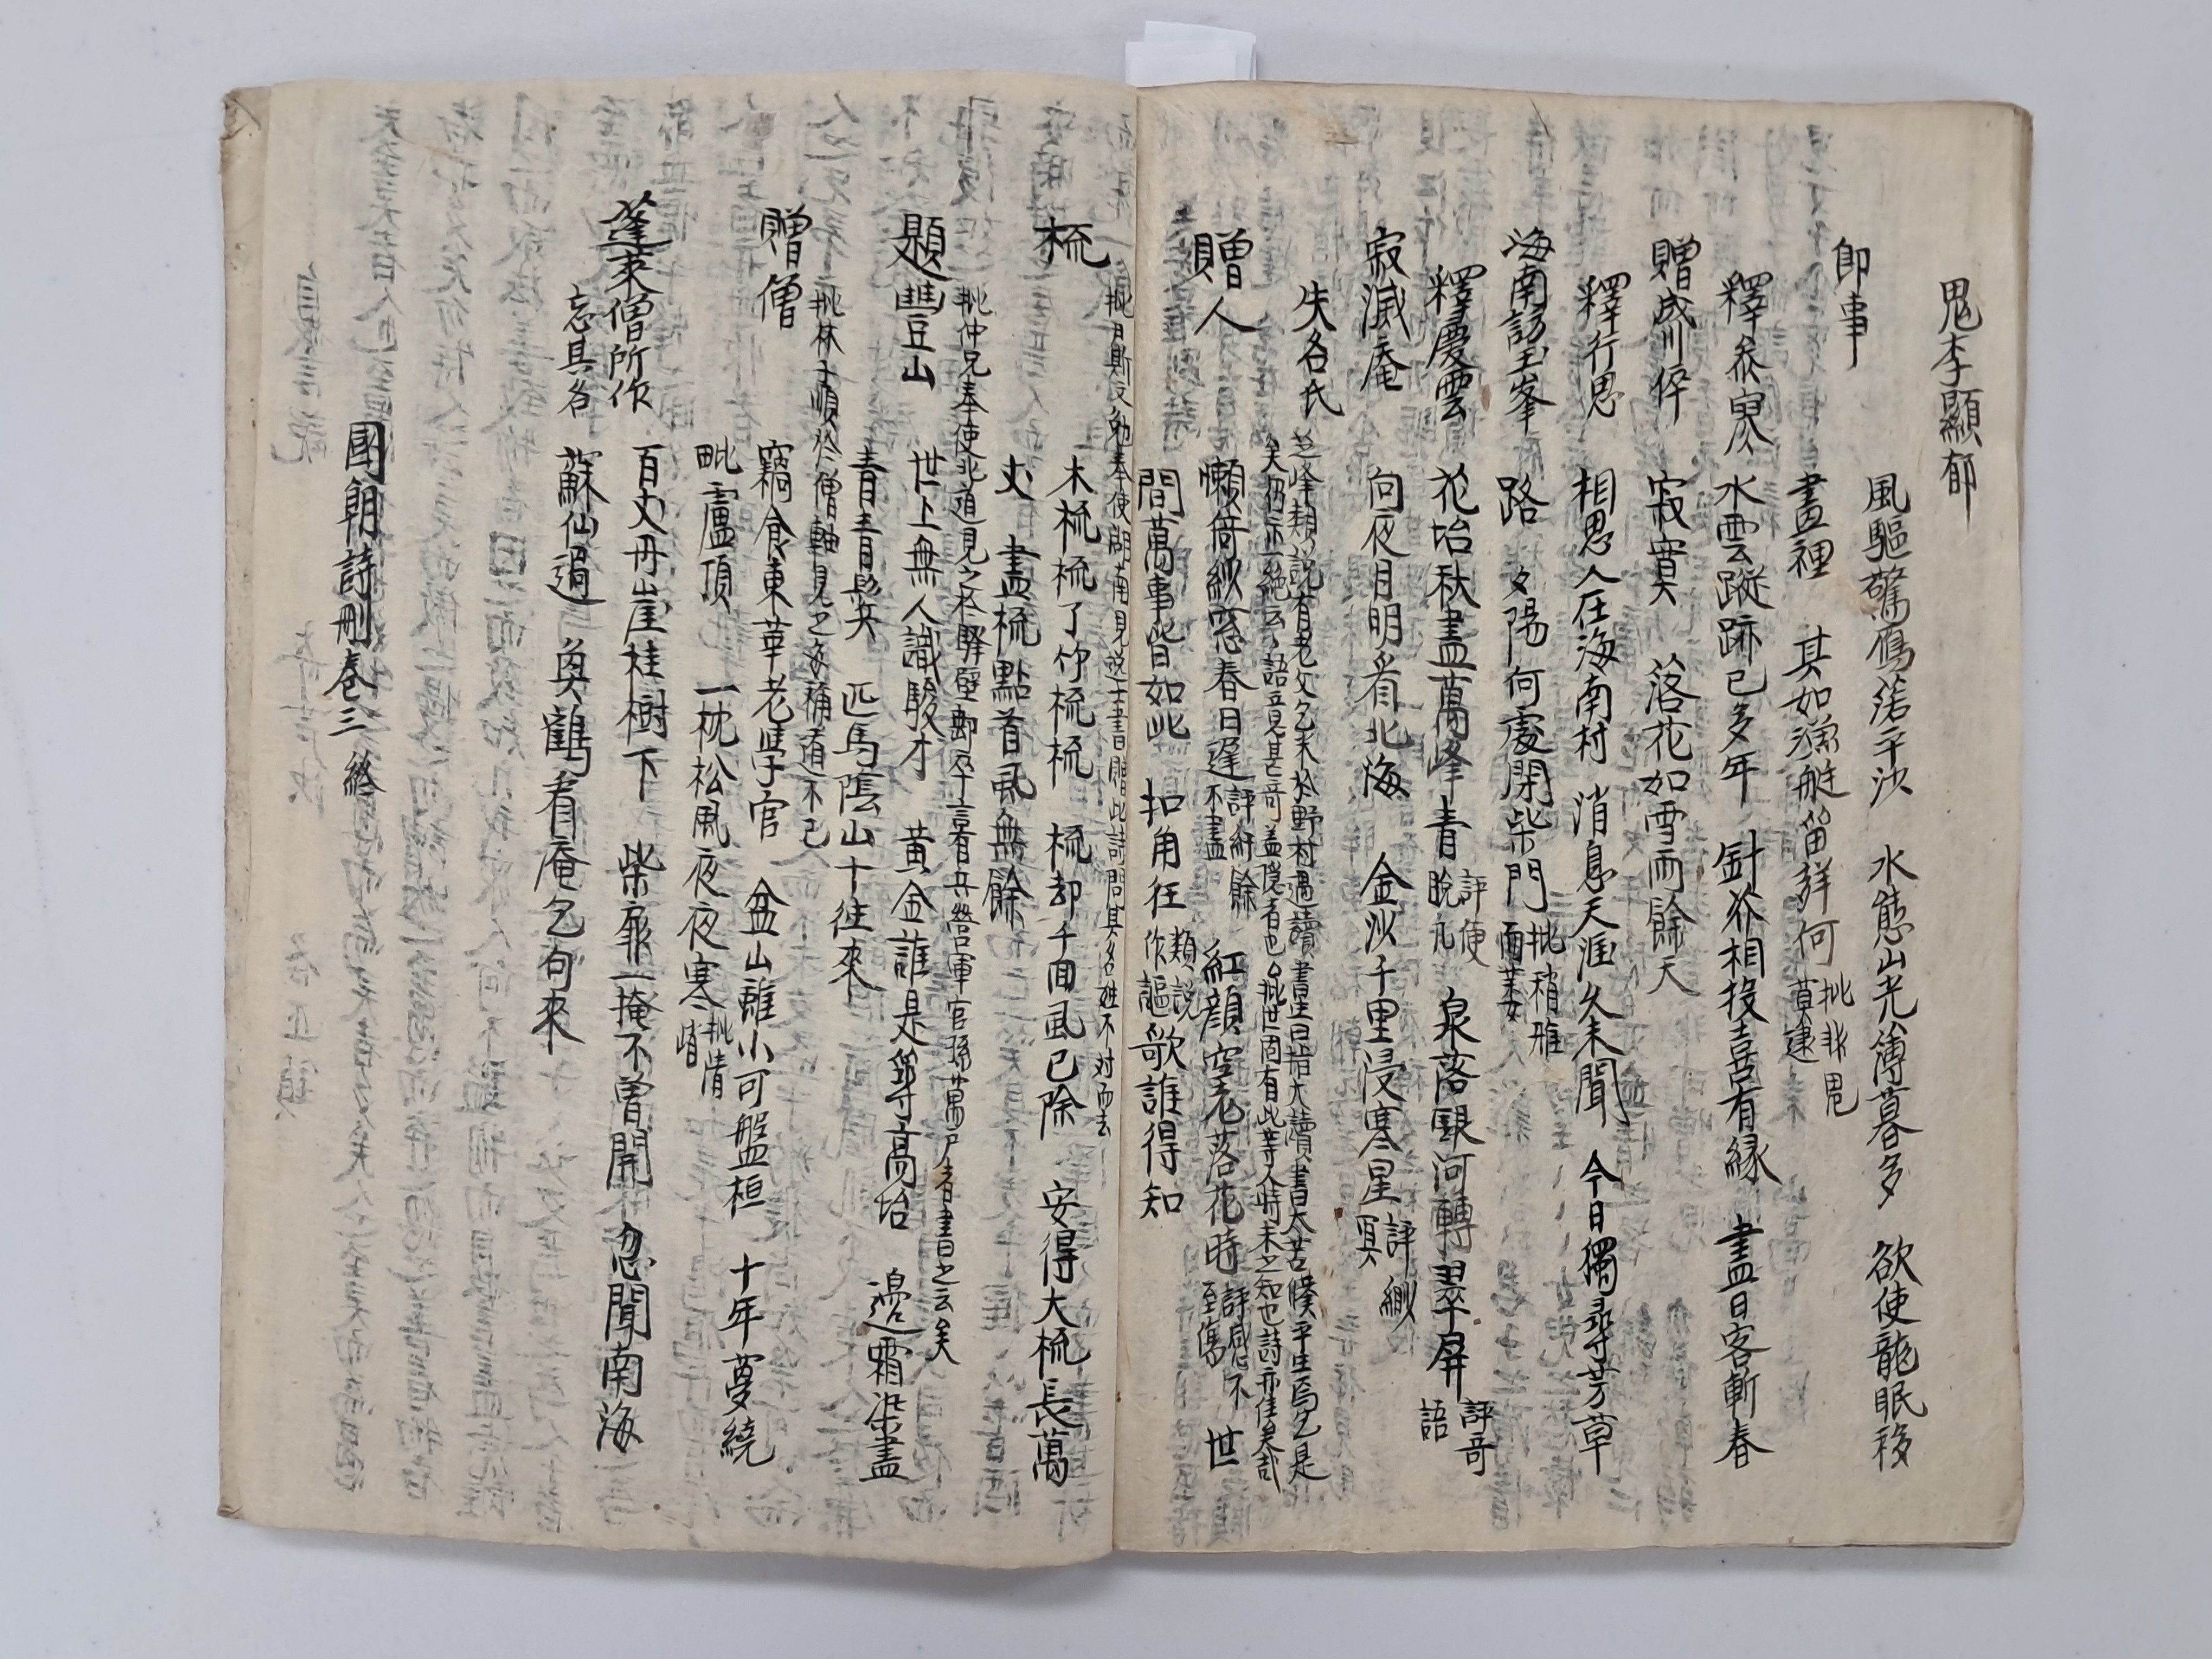 鬼李顯郁
風驅驚鴈落平沙 水態山光薄暮多 欲使龍眠移
即事
畫裡 其如漁艇笛聲何 批非鬼莫逮
釋參寥 水雲蹤跡已多年 針芥相投喜有緣 盡日客軒春
贈成川倅 寂寞 落花如雪雨餘天
釋行思 相思人在海南村 消息天涯久未聞 今日獨尋芳草
海南訪玉峯 路 夕陽何處閉柴門 批稍雅而萎
釋慶雲 花坮秋盡萬峰青 評使晚凢 泉落銀河轉翠屏 評奇語
寂滅庵 向夜月明看北海 金沙千里浸寒星 評緲冥
失名氏 芝峰類說有老父乞米於野村過讀書生曰措大讀書太苦僕平生爲乞是
矣仍示一絕云云語意甚奇盖隱者也 批世固有此等人時未之知也詩亦佳矣哉
贈人 懶倚紗窓春日遲 評紆餘不盡 紅顔空老落花時 評感不至傷 世
間萬事皆如此 扣角狂 類說作謳 歌誰得知
批月斯反勉奉使湖南見 士書贈此詩問其名姓不对而去
梳 木梳梳了竹梳梳 梳却千回虱已除 安得大梳長萬
丈 盡梳黔首虱無餘
批仲兄奉使北道見之於驛壁郵卒言有兵營軍官孫萬戶者書之云矣
題豊山 世上無人識駿才 黃金誰是築高坮 邊霜染盡
青青鬂 匹馬陰山十往來
批林子順於僧軸見之每稱道不已
贈僧 竊食東華老學官 盆山雖小可盤桓 十年夢繞
毗盧頂 一枕松風夜夜寒 批情峭
蓬萊僧所作 百丈丹崖桂樹下 柴扉一掩不曾開 忽聞南海
忘其名 蘇仙過 奐鶴看庵乞句來
國朝詩刪卷三 終